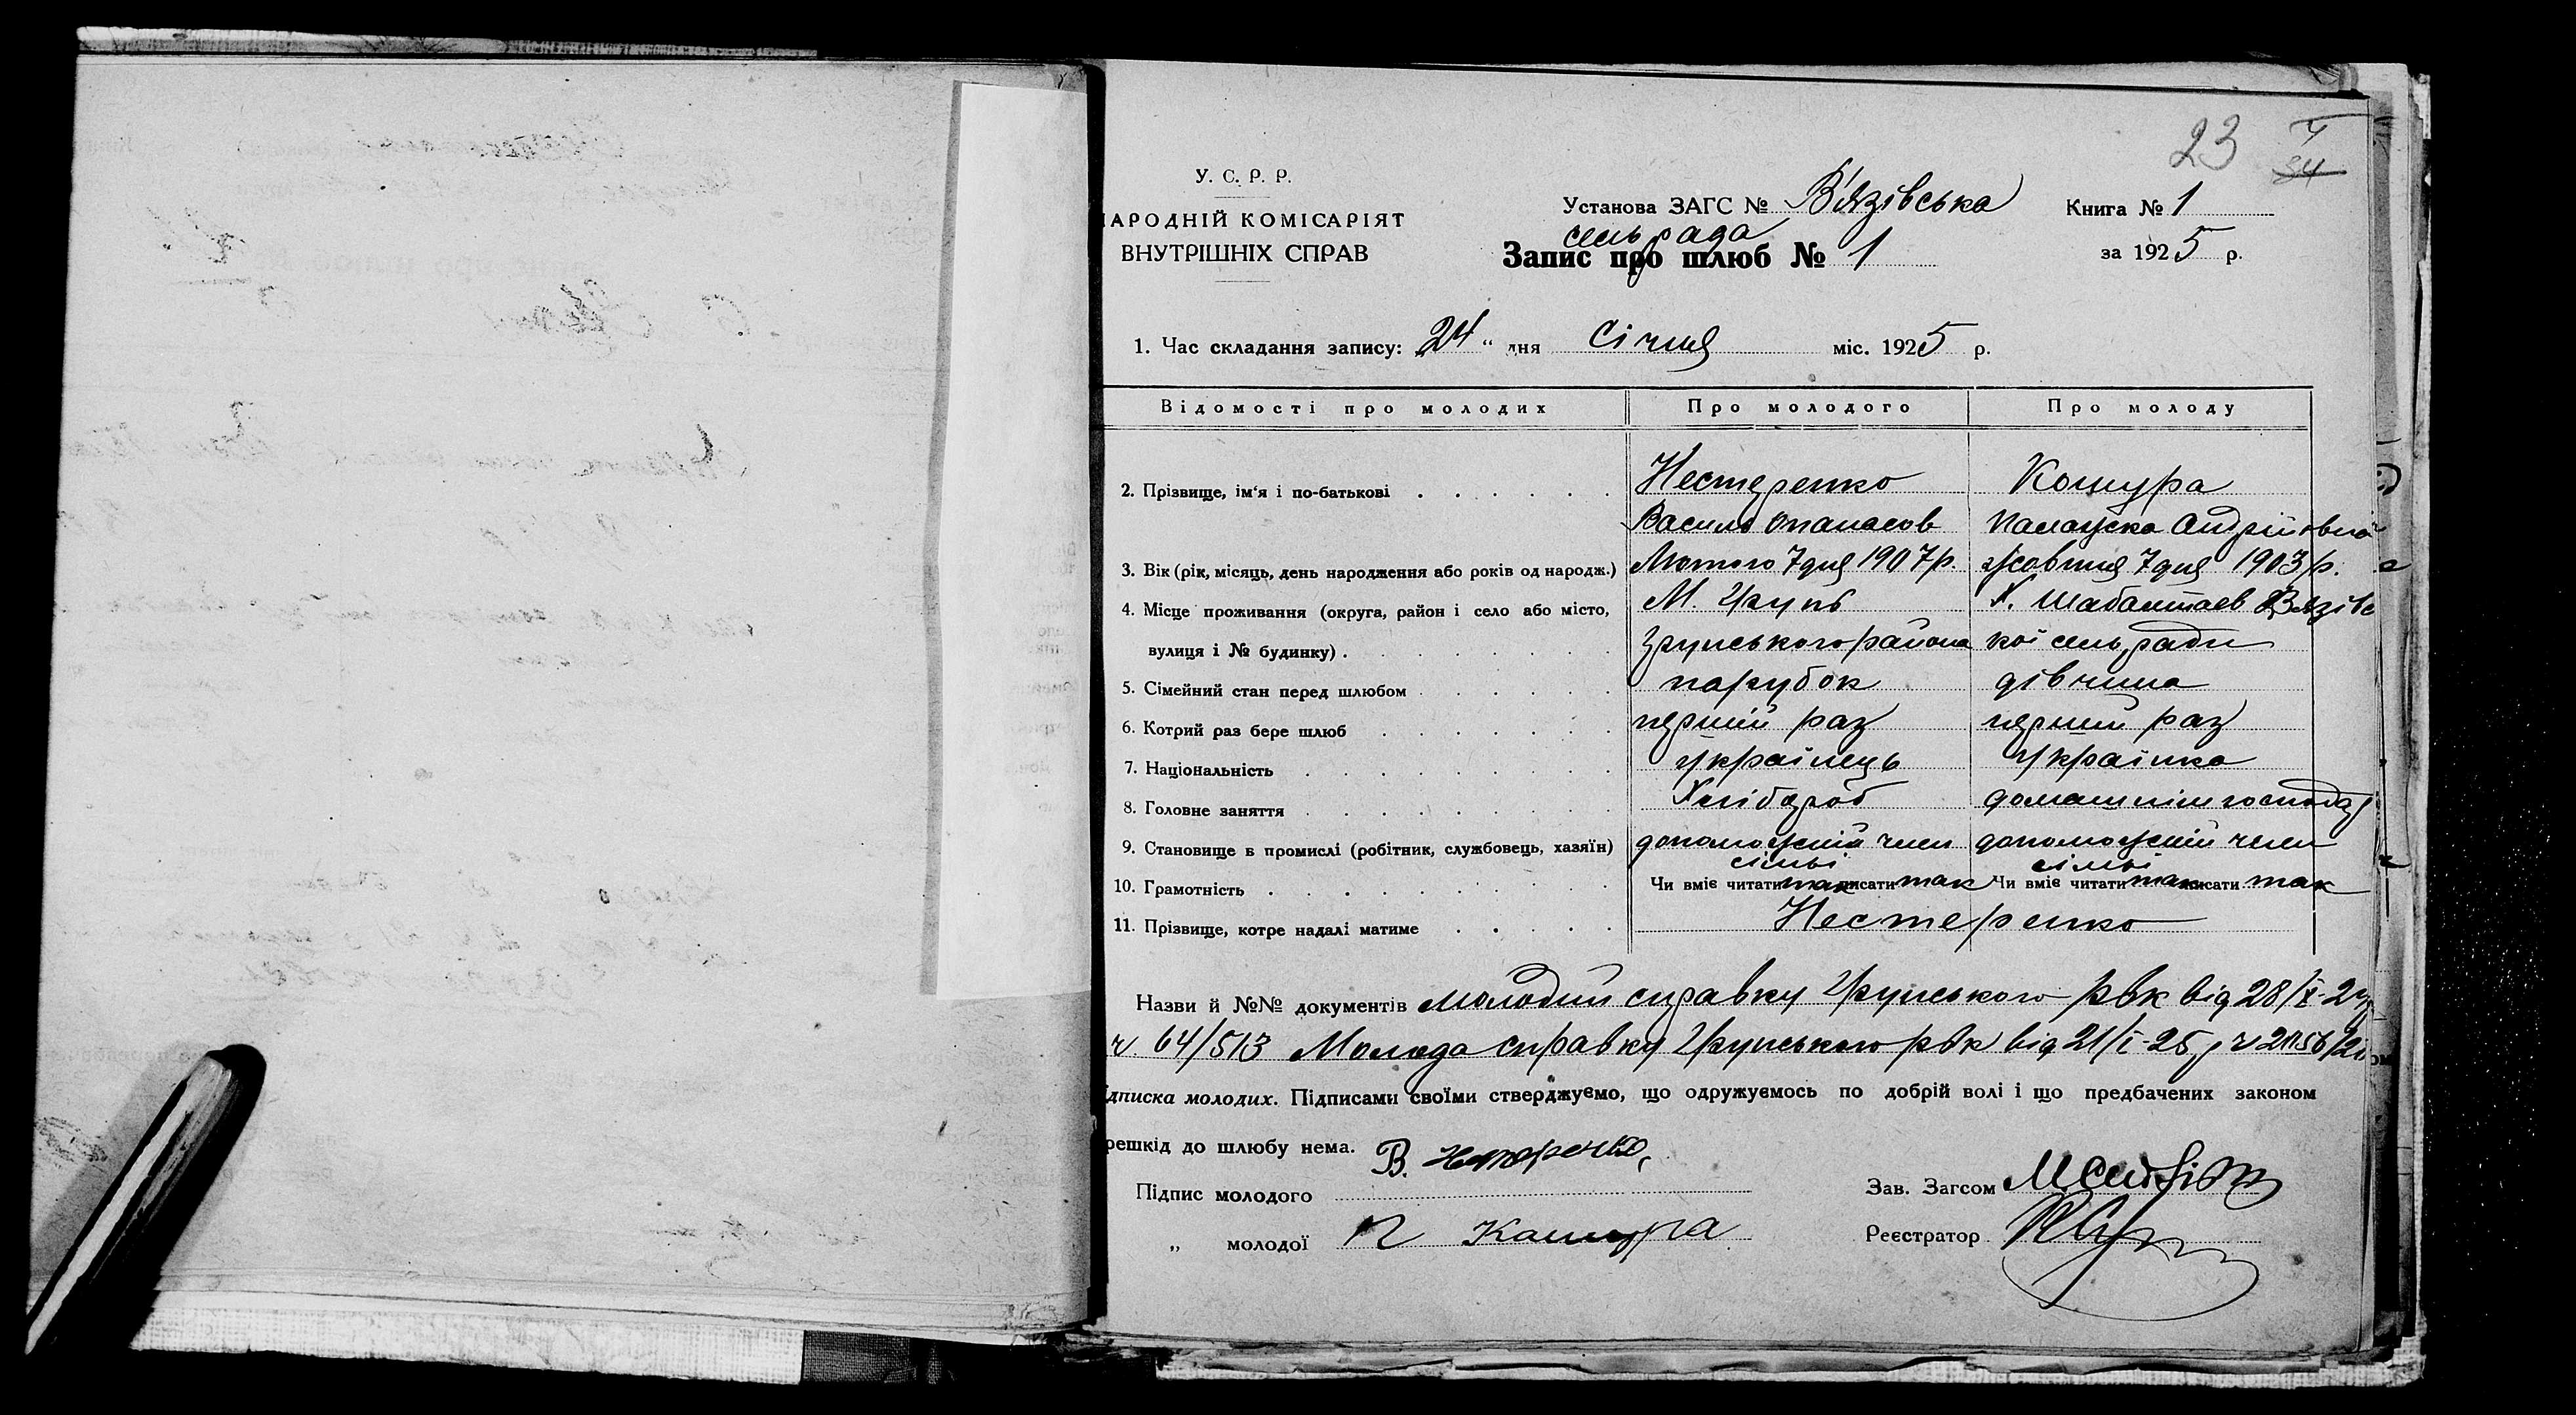 23
4
34
У. С. Р. Р.
НАРОДНІЙ КОМІСАРІЯТ
ВНУТРІШНІХ СПРАВ
Установа ЗАГС № В'язівська
сель рада
Книга № 1
Запис про шлюб № 1
за 1925 р.
1. Час складання запису: „24“ дня Січня міс. 1925 р.
Відомості про молодих Про молодого Про молоду
2. Прізвище, ім'я і по-батькові Нестеренко Кошура
Василь Опанасов Палажка Андріївна
3. Вік (рік, місяць, день народження або років од народж.) Лютого 7 дня 1907 р. Жовтня 7 дня 1903 р.
4. Місце проживання (округа, район і село або місто, М. Грунь Х. Шабалтаєв Вязівс
вулиця і № будинку) Грунського района кої сель ради
5. Сімейний стан перед шлюбом парубок дівчина
6. Котрий раз бере шлюб перший раз перший раз
7. Національність українець українка
8. Головне заняття Хлібороб домашнім господар
9. Становище в промислі (робітник, службовець, хазяїн) допоможній член допоможній член
сімьї сімьї
10. Грамотність Чи вміє читати так писати так Чи вміє читати так писати так
11. Прізвище, котре надалі матиме Нестеренко
Назви й №№ документів молодий справку Грунського РВК від 28/
ч 64/513 Молода справку Грунського РВК від 21/I-25 р ч
дписка молодих. Підписами своїми стверджуємо, що одружуємось по добрій волі і що предбачених законом
решкід до шлюбу нема.
Підпис молодого В. Нестеренко
Зав. Загсом
„ молодої П Кашура
Реєстратор